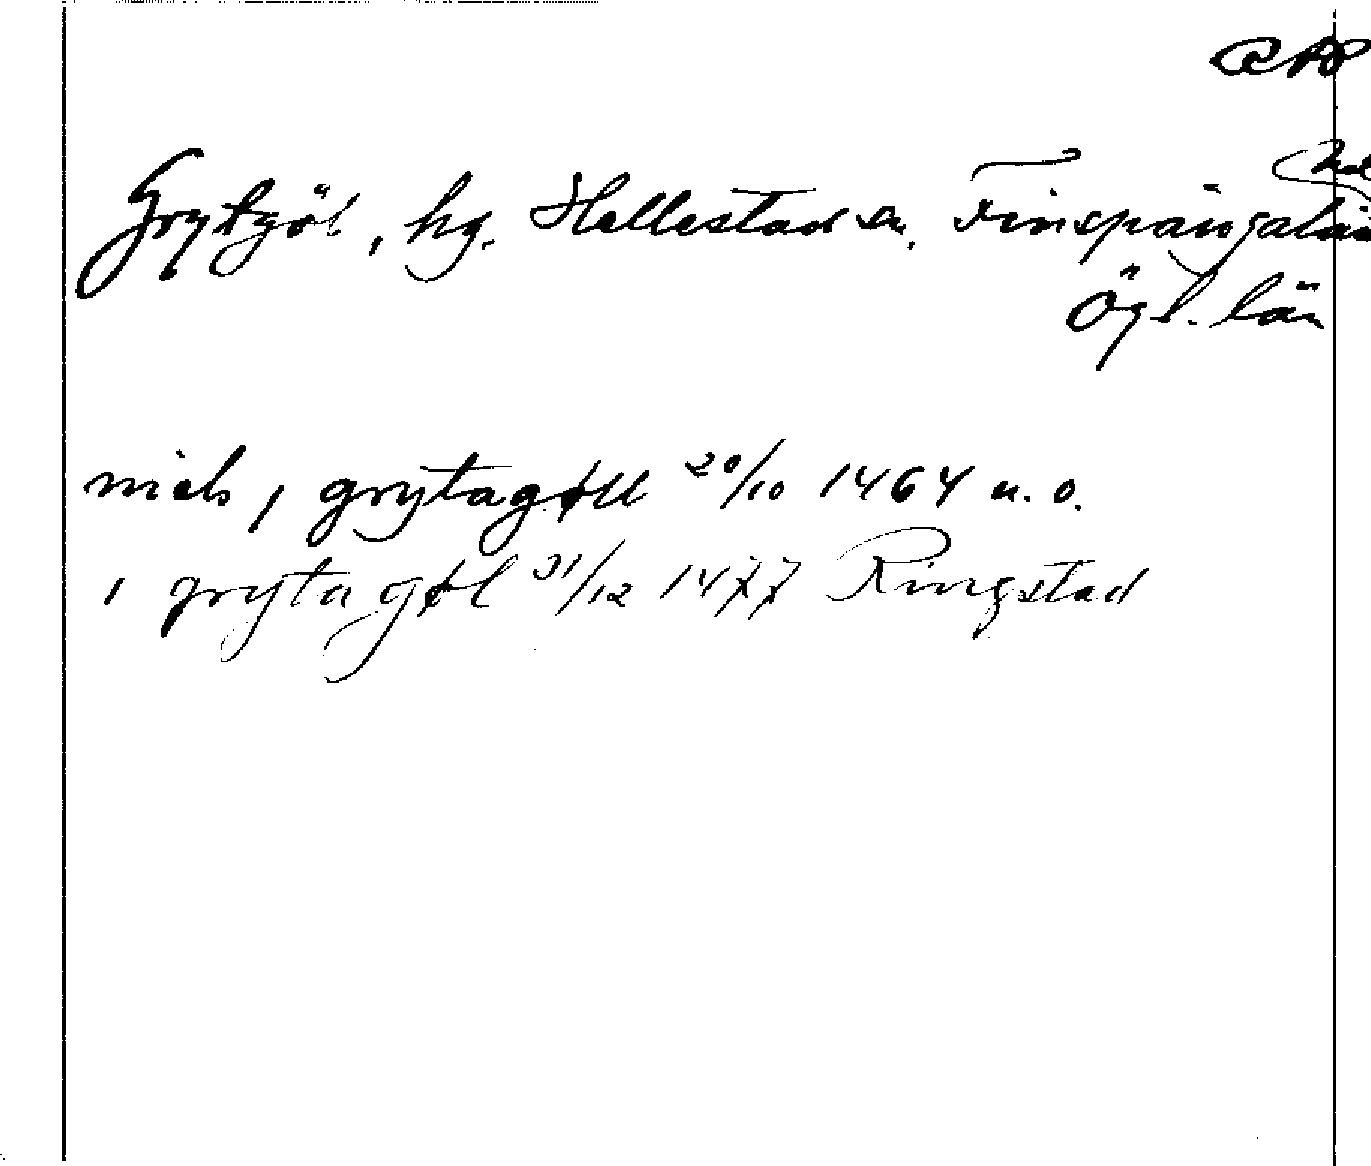 Grytgöl, hg. Hellestad sn. Finspångalän
Ögl. län
niels i grytagøll 20/10 1464 u. o.
i grytagøl 31/12 1477 Ringstad